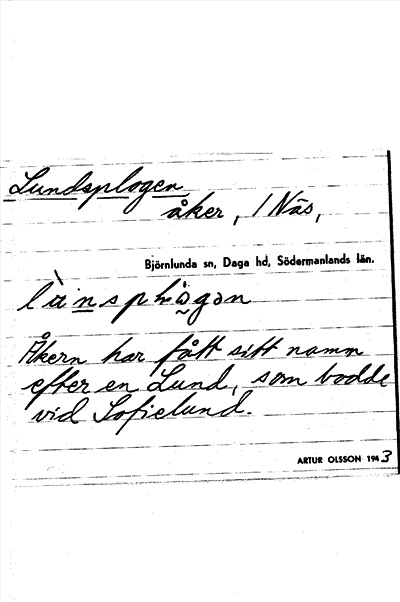 Lundsplogen
åker, 1 Näs,
Björnlunda sn, Daga hd, Södermanlands län.
Åkern har fått sitt namn
efter en Lund, som bodde
vid Sofielund.
ARTUR OLSSON 1943